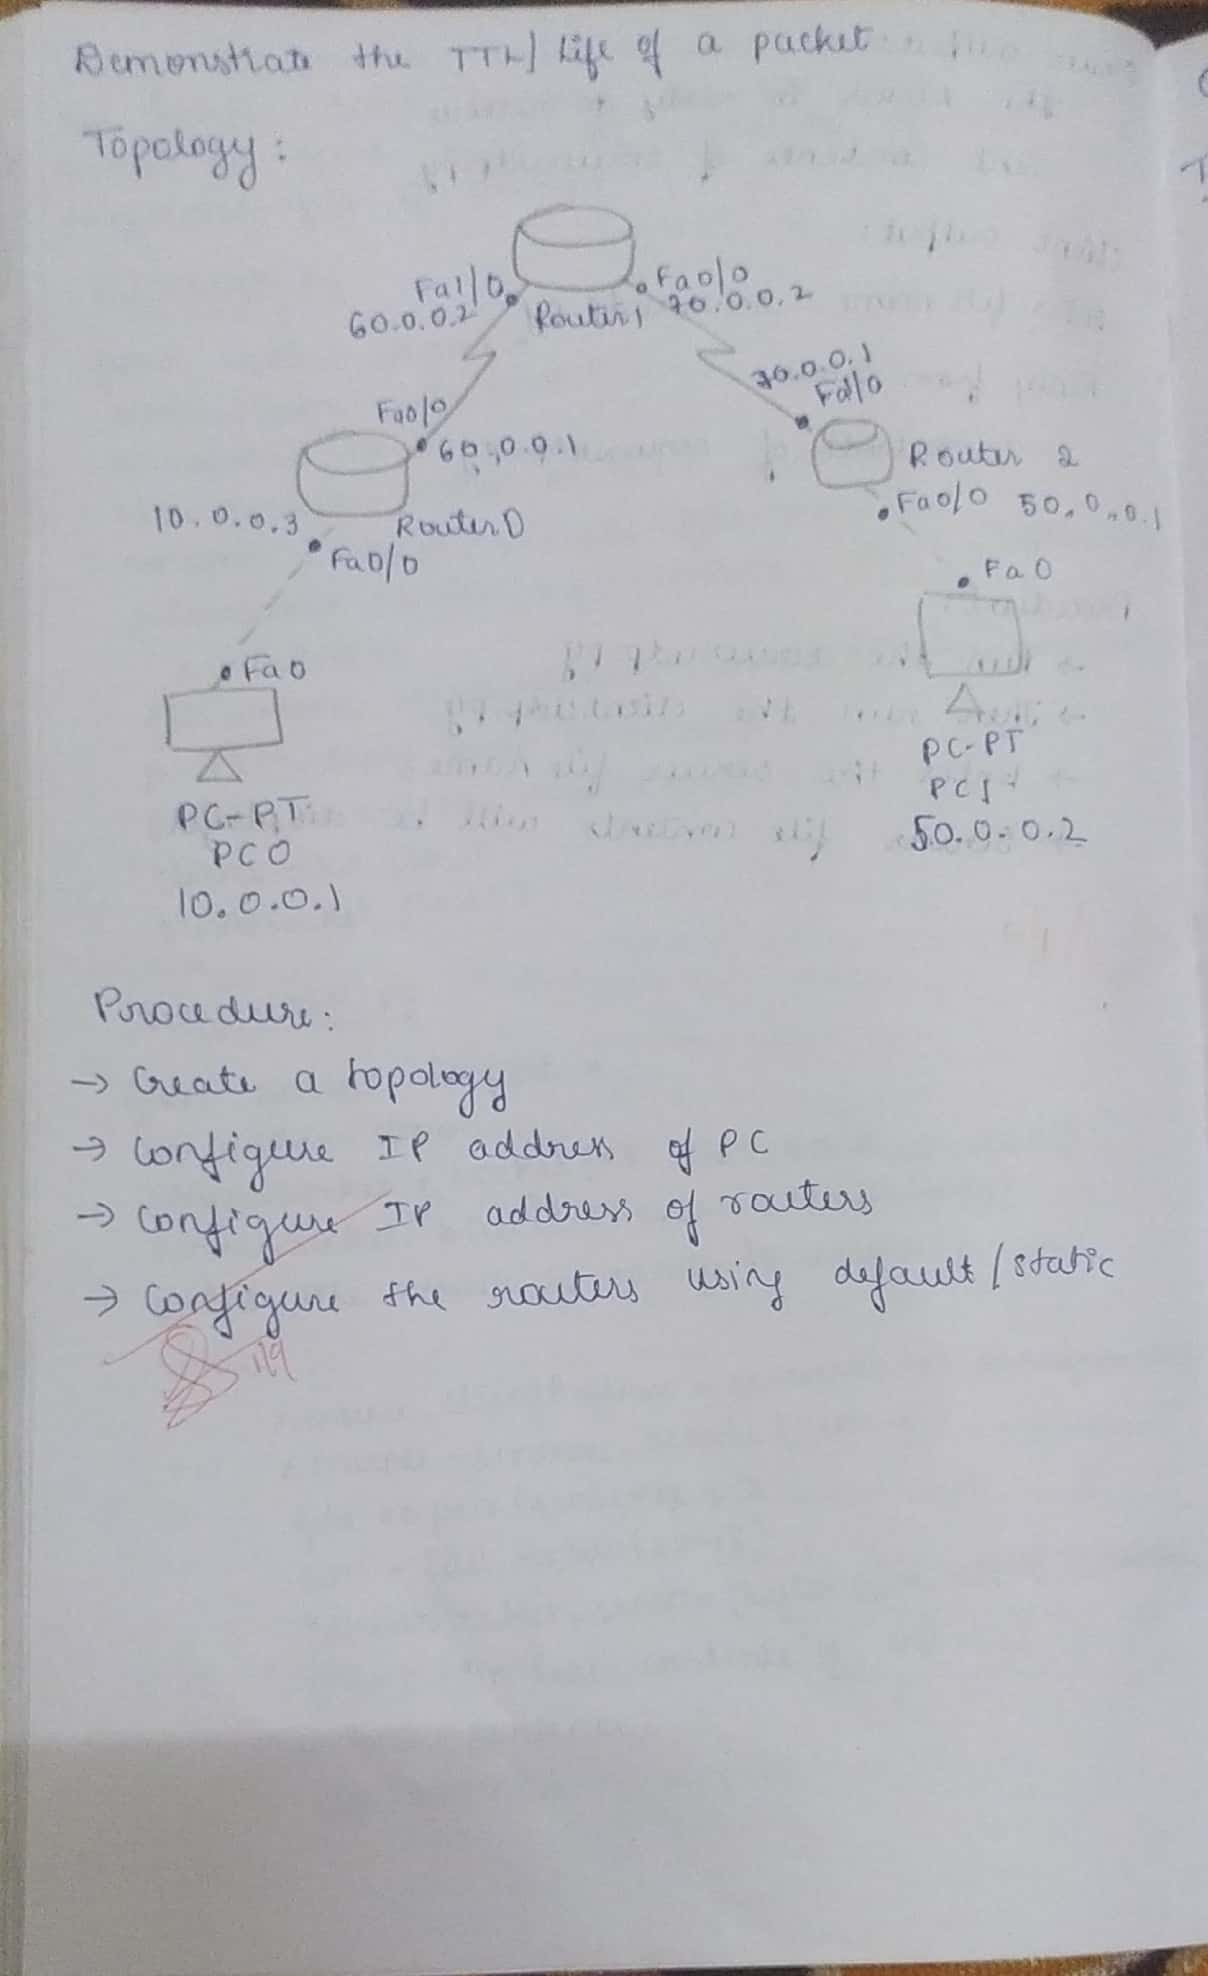 Demonstrate the TTL/ Life of a packet
Topology:
Fa1/0
60.0.0.2
Router1
Fa0/0
70.0.0.2
70.0.0.1
Fa1/0
Fa0/0
60.0.0.1
Router 2
Fa0/0 50.0.0.1
10.0.0.3
Router0
Fa0/0
Fa0
Fa0
PC-PT
PC1
50.0.0.2
PC-PT
PC0
10.0.0.1
Procedure:
→ Create a topology
→ Configure IP address of PC
→ Configure IP address of routers
→ Configure the routers using default/static